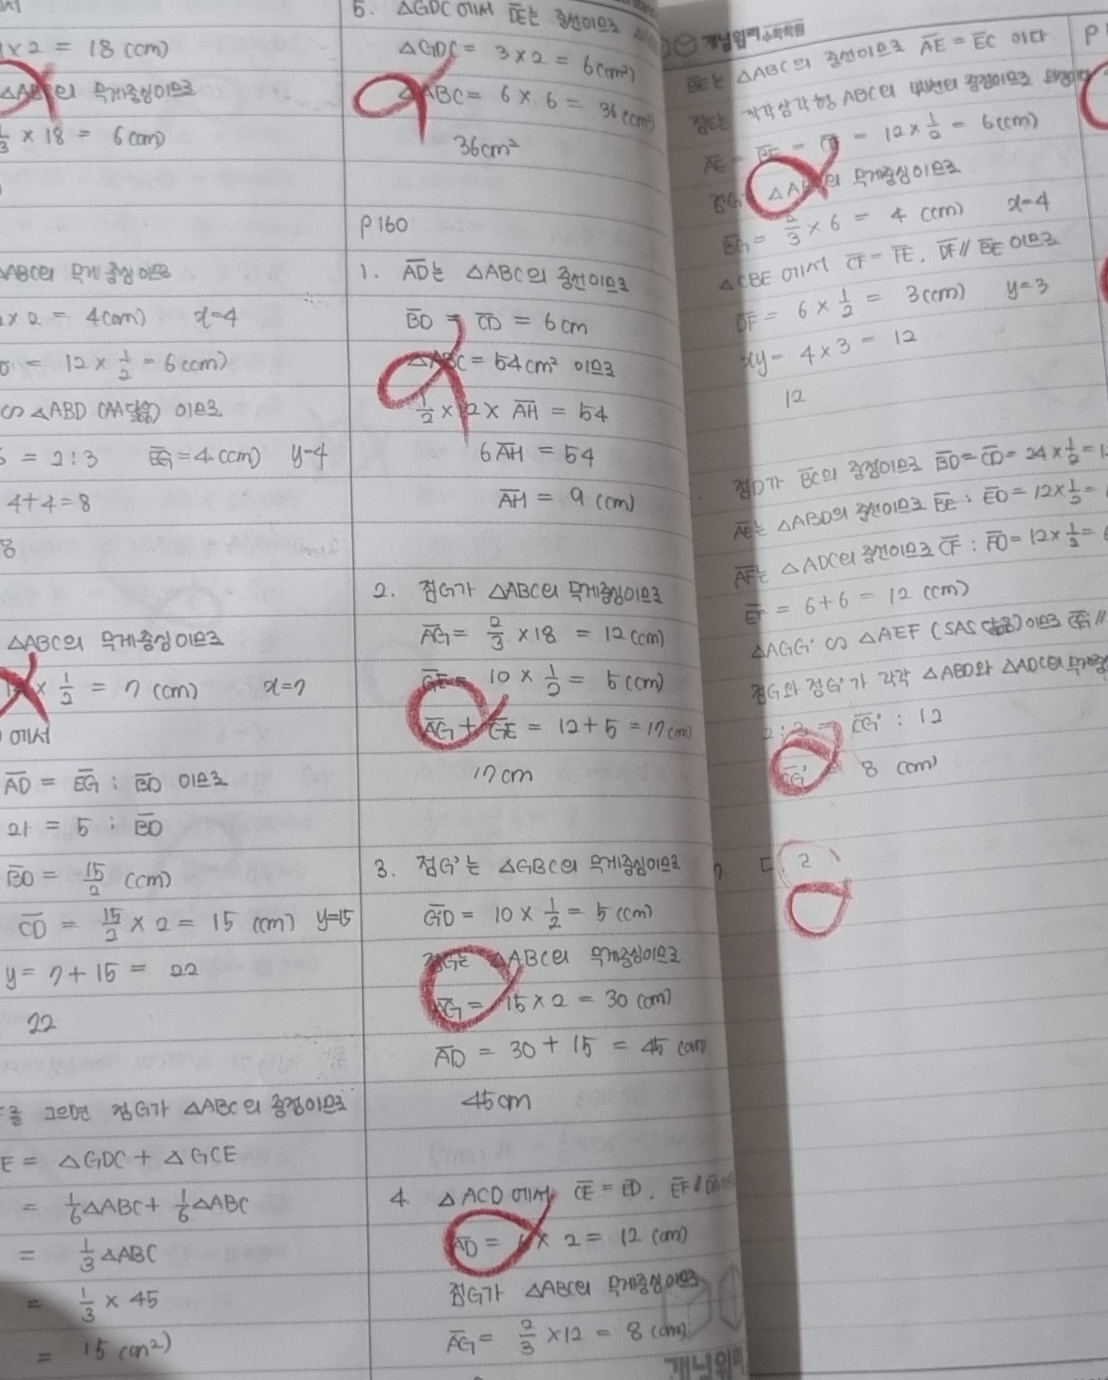 × 2 = 18 (cm)
의 무게중심이므로
× 18 = 6 (cm)
△ABC의 무게중심이므로
× 2 = 4 (cm) x=4
= 12 × 1/2 = 6 (cm)
∽ △ABD (AA닮음) 이므로
= 2 : 3 = 4 (cm) y=4
4+4=8
8
△ABC의 무게중심이므로
× 1/2 = 7 (cm) x=7
에서
AD = EG : BD 이므로
21 = 5 : BD
BD = 15/2 (cm)
CD = 15/2 × 2 = 15 (cm) y=15
y = 7 + 15 = 22
22
를 그으면 점G가 △ABC의 중점이므로
E = △GDC + △GCE
= 1/6 △ABC + 1/6 △ABC
= 1/3 △ABC
= 1/3 × 45
= 15 (cm²)
5. △GDC 에서 DE는 중선이므로
△GDC = 3 × 2 = 6 (cm²)
△ABC = 6 × 6 = 36 (cm²)
36cm²
P 160
1. AD는 △ABC의 중선이므로
BD = CD = 6cm
△ABC = 54cm² 이므로
1/2 × 12 × AH = 54
6AH = 54
AH = 9 (cm)
2. 점G가 △ABC의 무게중심이므로
AG = 2/3 × 18 = 12 (cm)
GE = 10 × 1/2 = 5 (cm)
AG + GE = 12 + 5 = 17 (cm)
17cm
3. 점G'는 △GBC의 무게중심이므로
GD = 10 × 1/2 = 5 (cm)
점G는 △ABC의 무게중심이므로
AG = 15 × 2 = 30 (cm)
AD = 30 + 15 = 45 (cm)
45cm
4. △ACD 에서 CE = ED, EF //
AD = 6 × 2 = 12 (cm)
점G가 △ABC의 무게중심이므로
AG = 2/3 × 12 = 8 (cm)
개념원리
개념원리 수학학원
BE는 △ABC의 중선이므로 AE = EC 이다
점E는 직각삼각형 ABC의 빗변의 중점이므로
AE = BE = = 12 × 1/2 = 6 (cm)
점G는 △ABC의 무게중심이므로
BG = 2/3 × 6 = 4 (cm) x=4
△CBE 에서 CF = FE, DF // BE 이므로
DF = 6 × 1/2 = 3 (cm) y=3
xy = 4 × 3 = 12
12
점D가 BC의 중점이므로 BD = CD = 24 × 1/2 =
AE는 △ABD의 중선이므로 BE : ED = 12 × 1/2 =
AF는 △ADC의 중선이므로 CF : FD = 12 × 1/2 =
EF = 6 + 6 = 12 (cm)
△AGG' ∽ △AEF (SAS 닮음) 이므로 GG' //
점G와 점G'가 각각 △ABD와 △ADC의 무게중
2 : 3 = GG' : 12
GG' = 8 (cm)
2
P